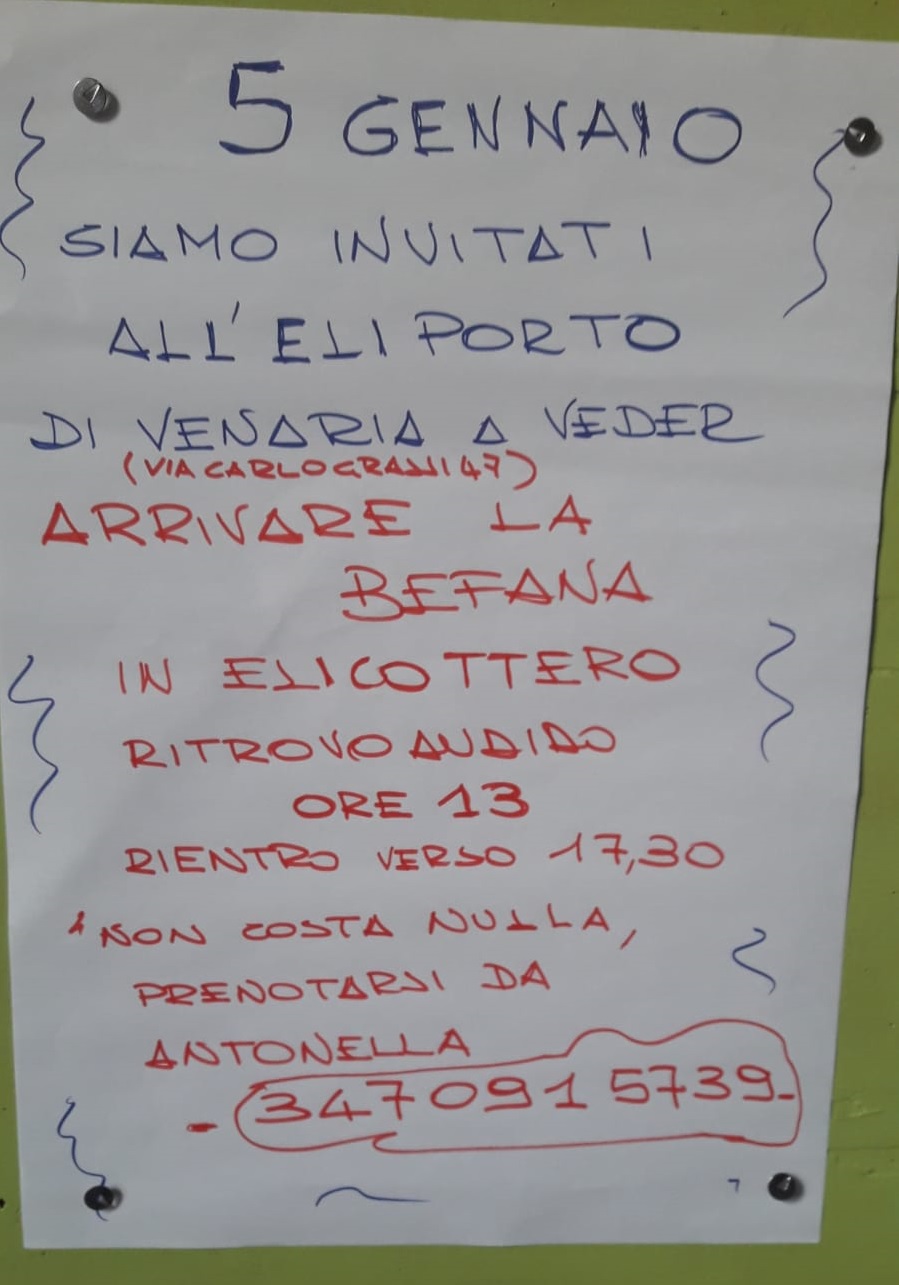 5 GENNAIO
SIAMO INVITATI
ALL'ELIPORTO
DI VENARIA A VEDER
(VIA CARLO GRASSI 47)
ARRIVARE LA
BEFANA
IN ELICOTTERO
RITROVO AUDIDO
ORE 13
RIENTRO VERSO 17,30
NON COSTA NULLA,
PRENOTARSI DA
ANTONELLA
- 347 091 5739-